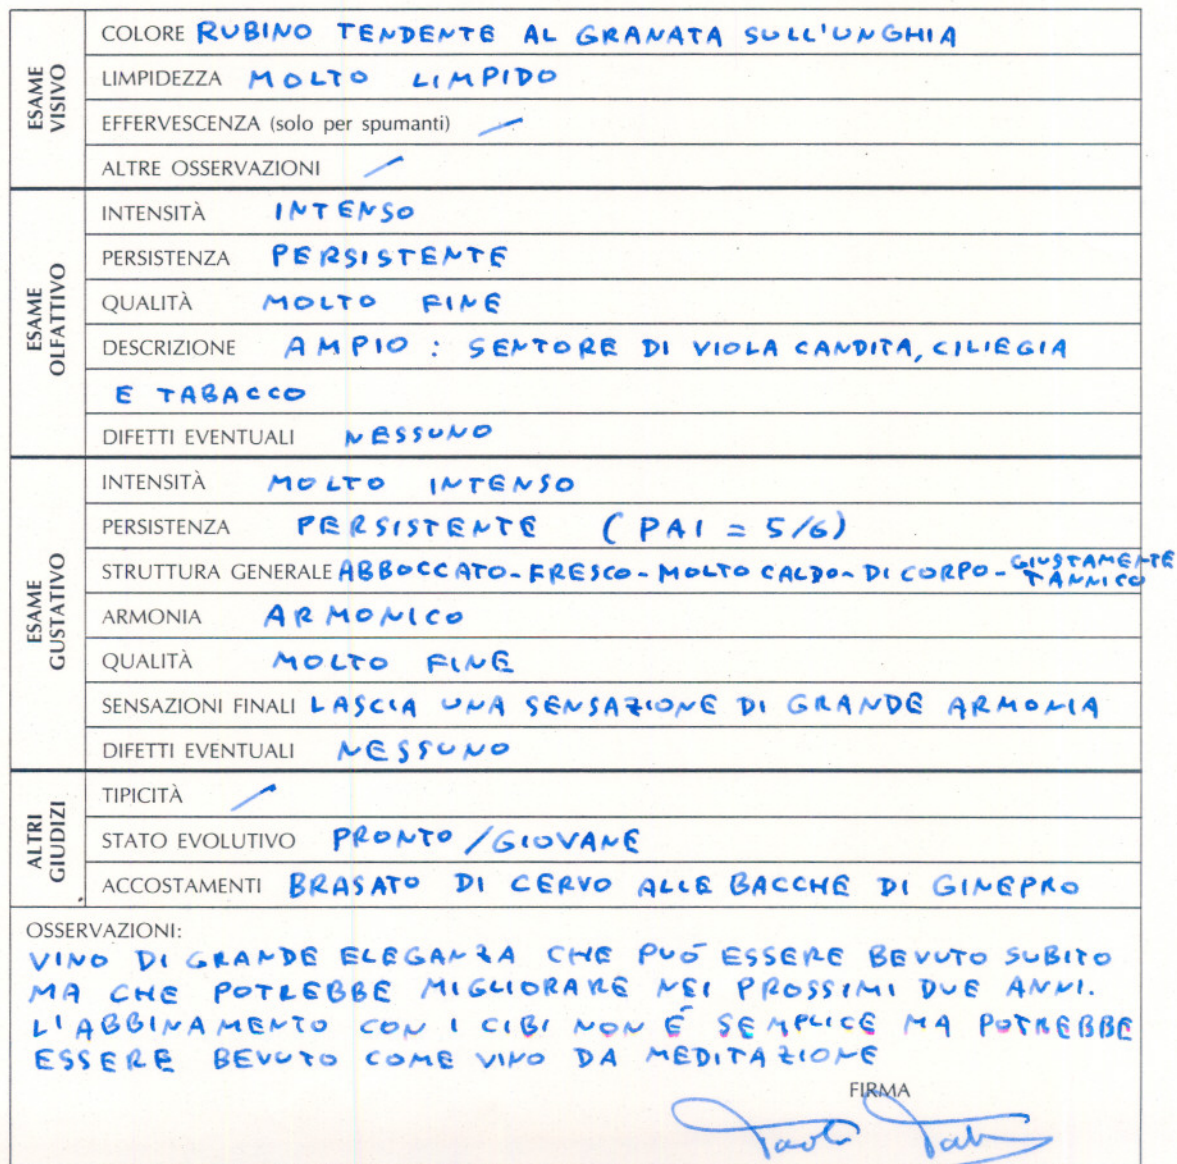 ESAME VISIVO
COLORE RUBINO TENDENTE AL GRANATA SULL'UNGHIA
LIMPIDEZZA MOLTO LIMPIDO
EFFERVESCENZA (solo per spumanti) /
ALTRE OSSERVAZIONI /
ESAME OLFATTIVO
INTENSITÀ INTENSO
PERSISTENZA PERSISTENTE
QUALITÀ MOLTO FINE
DESCRIZIONE AMPIO : SENTORE DI VIOLA CANDITA, CILIEGIA
E TABACCO
DIFETTI EVENTUALI NESSUNO
ESAME GUSTATIVO
INTENSITÀ MOLTO INTENSO
PERSISTENZA PERSISTENTE (PAI = 5/6)
STRUTTURA GENERALE ABBOCCATO - FRESCO - MOLTO CALDO - DI CORPO - GIUSTAMENTE TANNICO
ARMONIA ARMONICO
QUALITÀ MOLTO FINE
SENSAZIONI FINALI LASCIA UNA SENSAZIONE DI GRANDE ARMONIA
DIFETTI EVENTUALI NESSUNO
ALTRI GIUDIZI
TIPICITÀ /
STATO EVOLUTIVO PRONTO / GIOVANE
ACCOSTAMENTI BRASATO DI CERVO ALLE BACCHE DI GINEPRO
OSSERVAZIONI:
VINO DI GRANDE ELEGANZA CHE PUÒ ESSERE BEVUTO SUBITO
MA CHE POTREBBE MIGLIORARE NEI PROSSIMI DUE ANNI.
L'ABBINAMENTO CON I CIBI NON È SEMPLICE MA POTREBBE
ESSERE BEVUTO COME VINO DA MEDITAZIONE
FIRMA